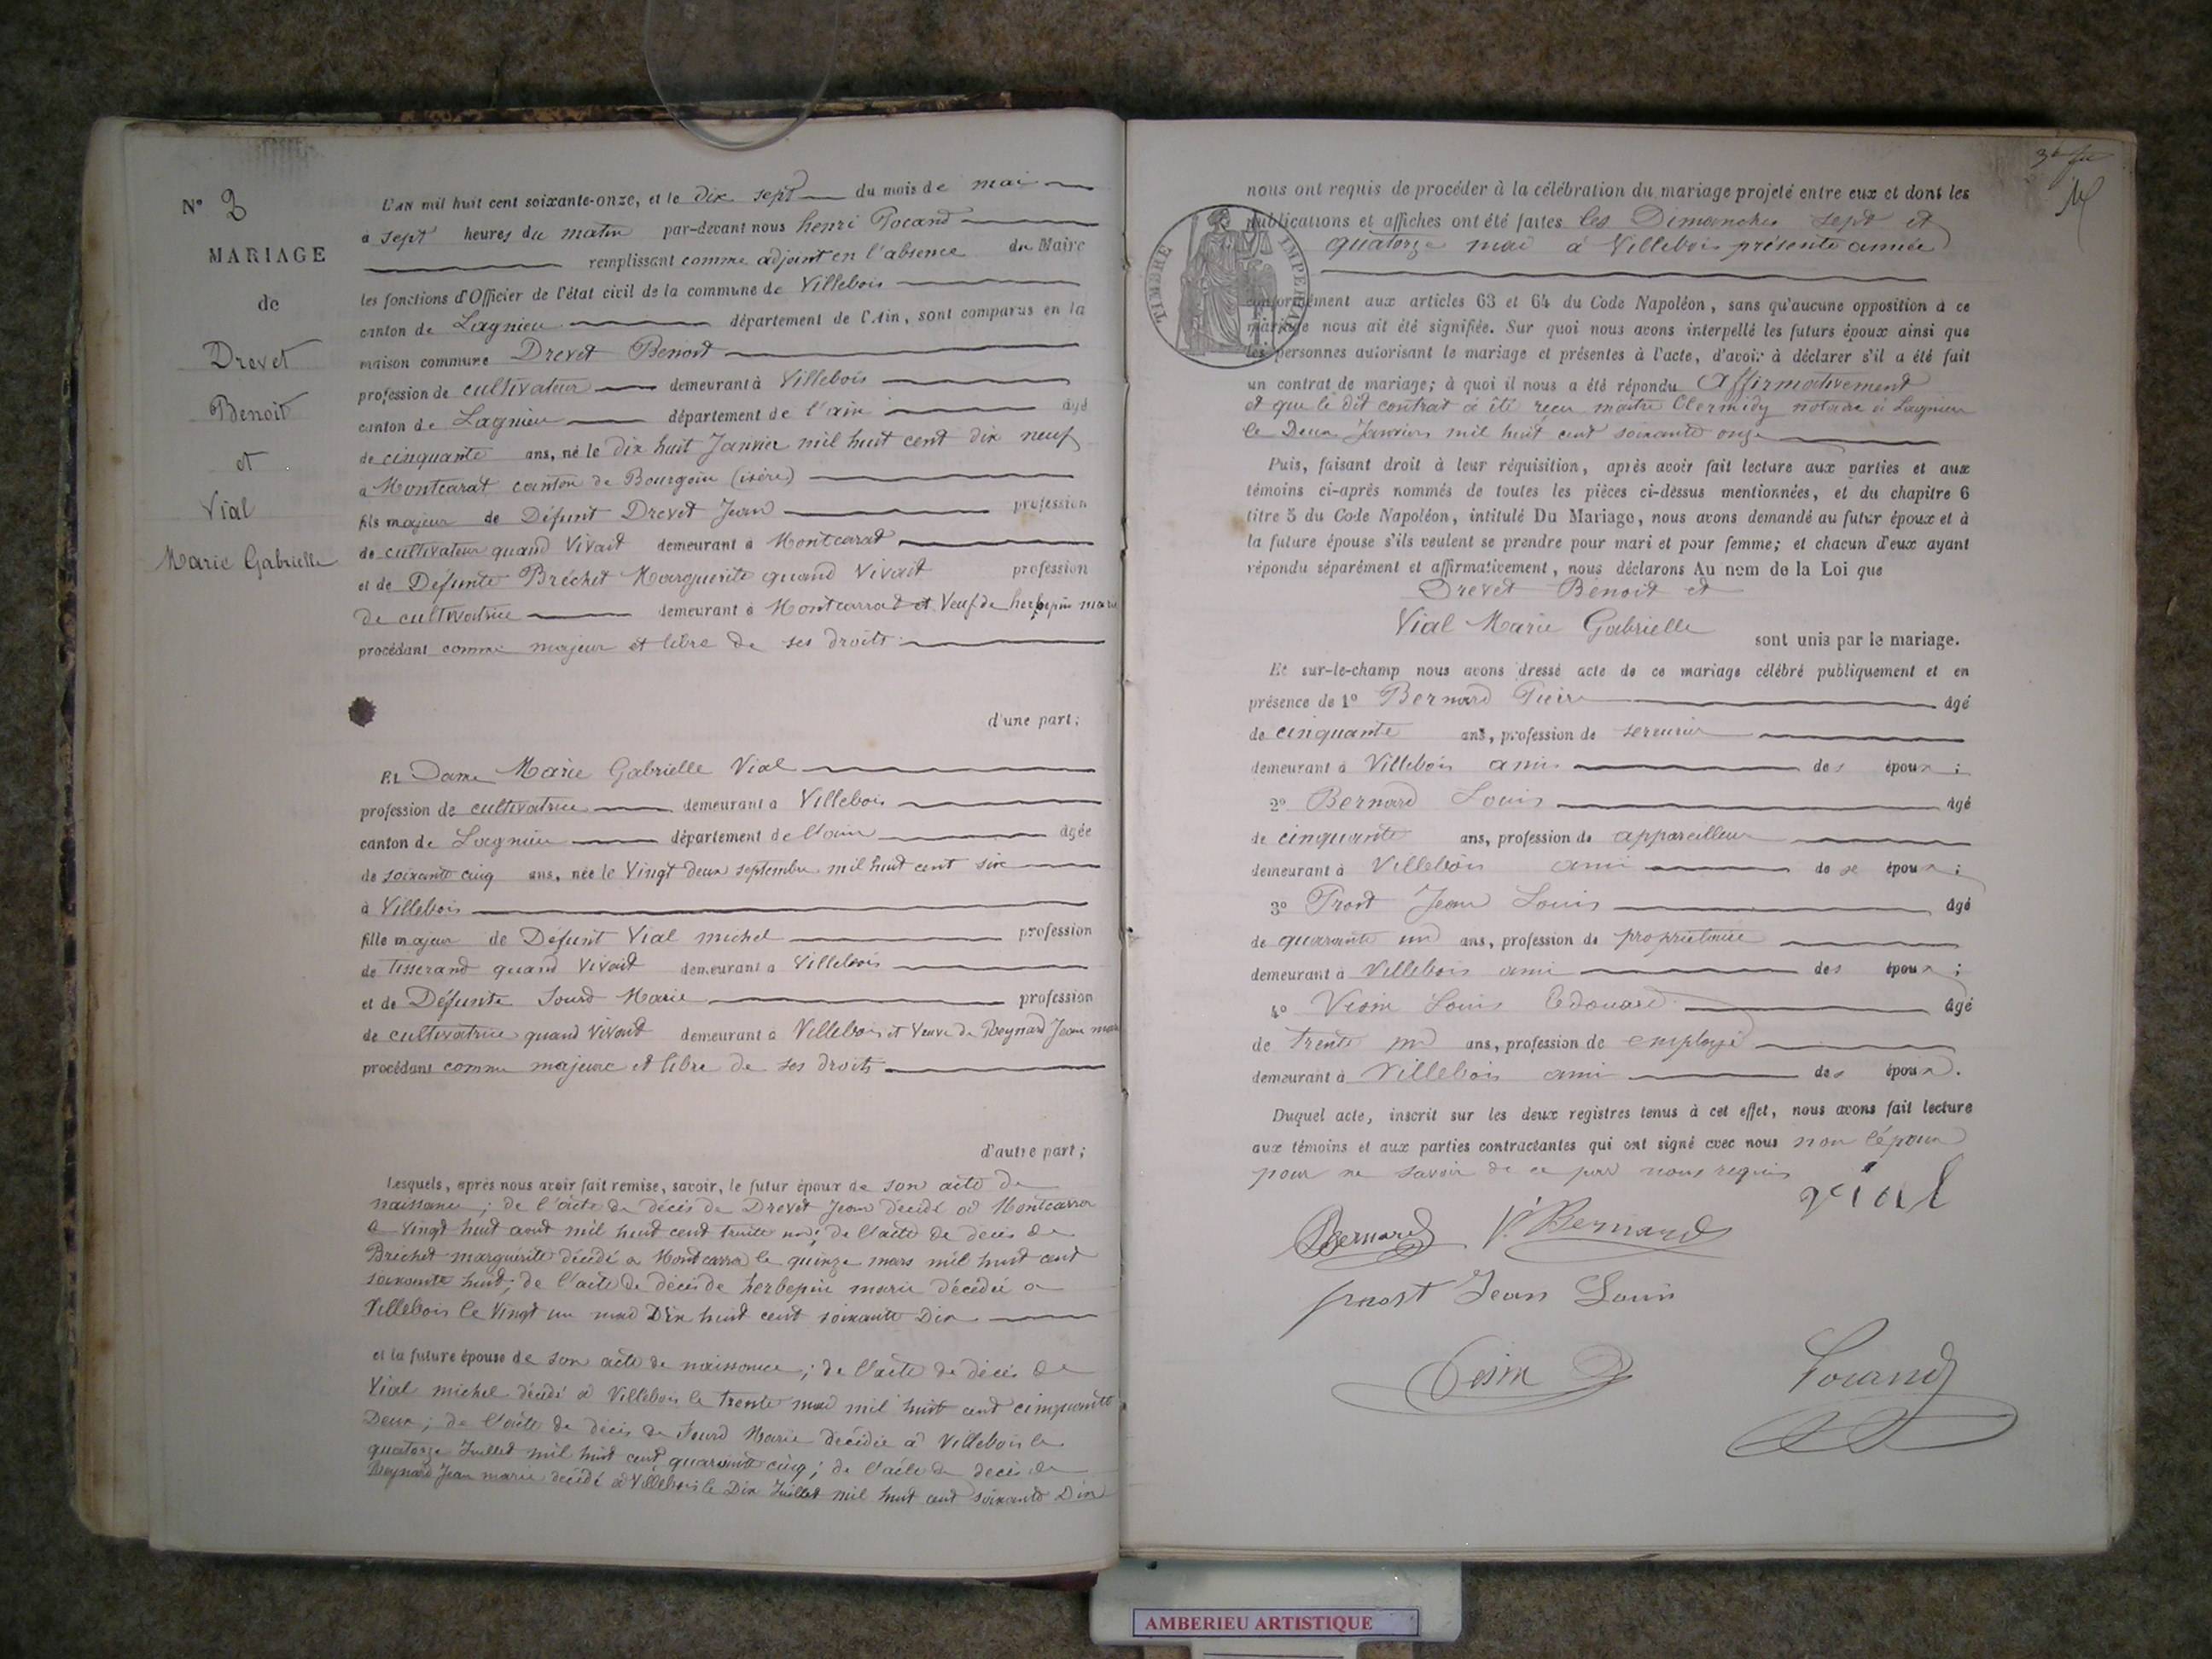 N° 3
MARIAGE
de
Drevet
Benoit
et
Vial
Marie Gabrielle
L'AN mil huit cent soixante-onze, et le dix sept du mois de mai
à sept heures du matin par-devant nous henri Pocand
remplissant comme adjoint en l'absence du Maire
les fonctions d'Officier de l'état civil de la commune de Villebois
canton de Lagnieu département de l'Ain, sont comparus en la
maison commune Drevet Benoit
profession de cultivateur demeurant à Villebois
canton de Lagnieu département de l'ain âgé
de cinquante ans, né le dix huit Janvier mil huit cent dix neuf
a Montcarat canton de Bourgoin (isère)
fils majeur de Défunt Drevet Jean profession
de cultivateur quand Vivait demeurant à Montcarat
et de Défunte Bréchet Marguerite quand Vivait profession
de cultivatrice demeurant à Montcarrat et Veuf de herbepin marie
procédant comme majeur et libre de ses droits
d'une part;
Et Dame Marie Gabrielle Vial
profession de cultivatrice demeurant à Villebois
canton de Lagnieu département de l'ain âgée
de soixante cinq ans, née le Vingt deux septembre mil huit cent six
à Villebois
fille majeur de Défunt Vial michel profession
de Tisserand quand Vivait demeurant à Villebois
et de Défunte Sourd Marie profession
de cultivatrice quand Vivait demeurant à Villebois et Veuve de Reynard Jean marie
procédant comme majeure et libre de ses droits
d'autre part;
Lesquels, après nous avoir fait remise, savoir, le futur époux de son acte de
naissance; de l'acte de décès de Drevet Jean décédé à Montcarra
le Vingt huit aout mil huit cent trente un; de l'acte de décès de
Bréchet marguerite décédé a Montcarra le quinze mars mil huit cent
soixante huit; de l'acte de décès de herbepin marie décédée a
Villebois le Vingt un mai Dix huit cent soixante Dix
et la future épouse de son acte de naissance; de l'acte de décès de
Vial michel décédé à Villebois le trente mai mil huit cent cinquante
Deux; de l'acte de décès de Sourd Marie décédée à Villebois le
quatorze Juillet mil huit cent quarante cinq; de l'acte de décès de
Reynard Jean marie décédé à Villebois le Dix Juillet mil huit cent soixante Dix
nous ont requis de procéder à la célébration du mariage projeté entre eux et dont les
publications et affiches ont été faites les Dimanches sept et
quatorze mai à Villebois présente année
TIMBRE IMPÉRIAL
conformément aux articles 63 et 64 du Code Napoléon, sans qu'aucune opposition à ce
mariage nous ait été signifiée. Sur quoi nous avons interpellé les futurs époux ainsi que
les personnes autorisant le mariage et présentes à l'acte, d'avoir à déclarer s'il a été fait
un contrat de mariage; à quoi il nous a été répondu Affirmativement
et que le dit contrat à été reçu maitre Clermidy notaire à Lagnieu
le Deux Janvier mil huit cent soixante onze
Puis, faisant droit à leur réquisition, après avoir fait lecture aux parties et aux
témoins ci-après nommés de toutes les pièces ci-dessus mentionnées, et du chapitre 6
titre 5 du Code Napoléon, intitulé Du Mariage, nous avons demandé au futur époux et à
la future épouse s'ils veulent se prendre pour mari et pour femme; et chacun d'eux ayant
répondu séparément et affirmativement, nous déclarons Au nom de la Loi que
Drevet Benoit et
Vial Marie Gabrielle sont unis par le mariage.
Et sur-le-champ nous avons dressé acte de ce mariage célébré publiquement et en
présence de 1° Bernard Pierre âgé
de cinquante ans, profession de serrurier
demeurant à Villebois amis des époux;
2° Bernard Louis âgé
de cinquante ans, profession de appareilleur
demeurant à Villebois ami de se époux;
3° Prost Jean Louis âgé
de quarante un ans, profession de propriétaire
demeurant à Villebois ami des époux;
4° Vesin Louis Edouard âgé
de trente un ans, profession de employé
demeurant à Villebois ami des époux.
Duquel acte, inscrit sur les deux registres tenus à cet effet, nous avons fait lecture
aux témoins et aux parties contractantes qui ont signé avec nous non l'époux
pour ne savoir de ce par nous requis
vial
Bernard P. Bernard
prost Jean Louis
Vesin Pocand
AMBERIEU ARTISTIQUE